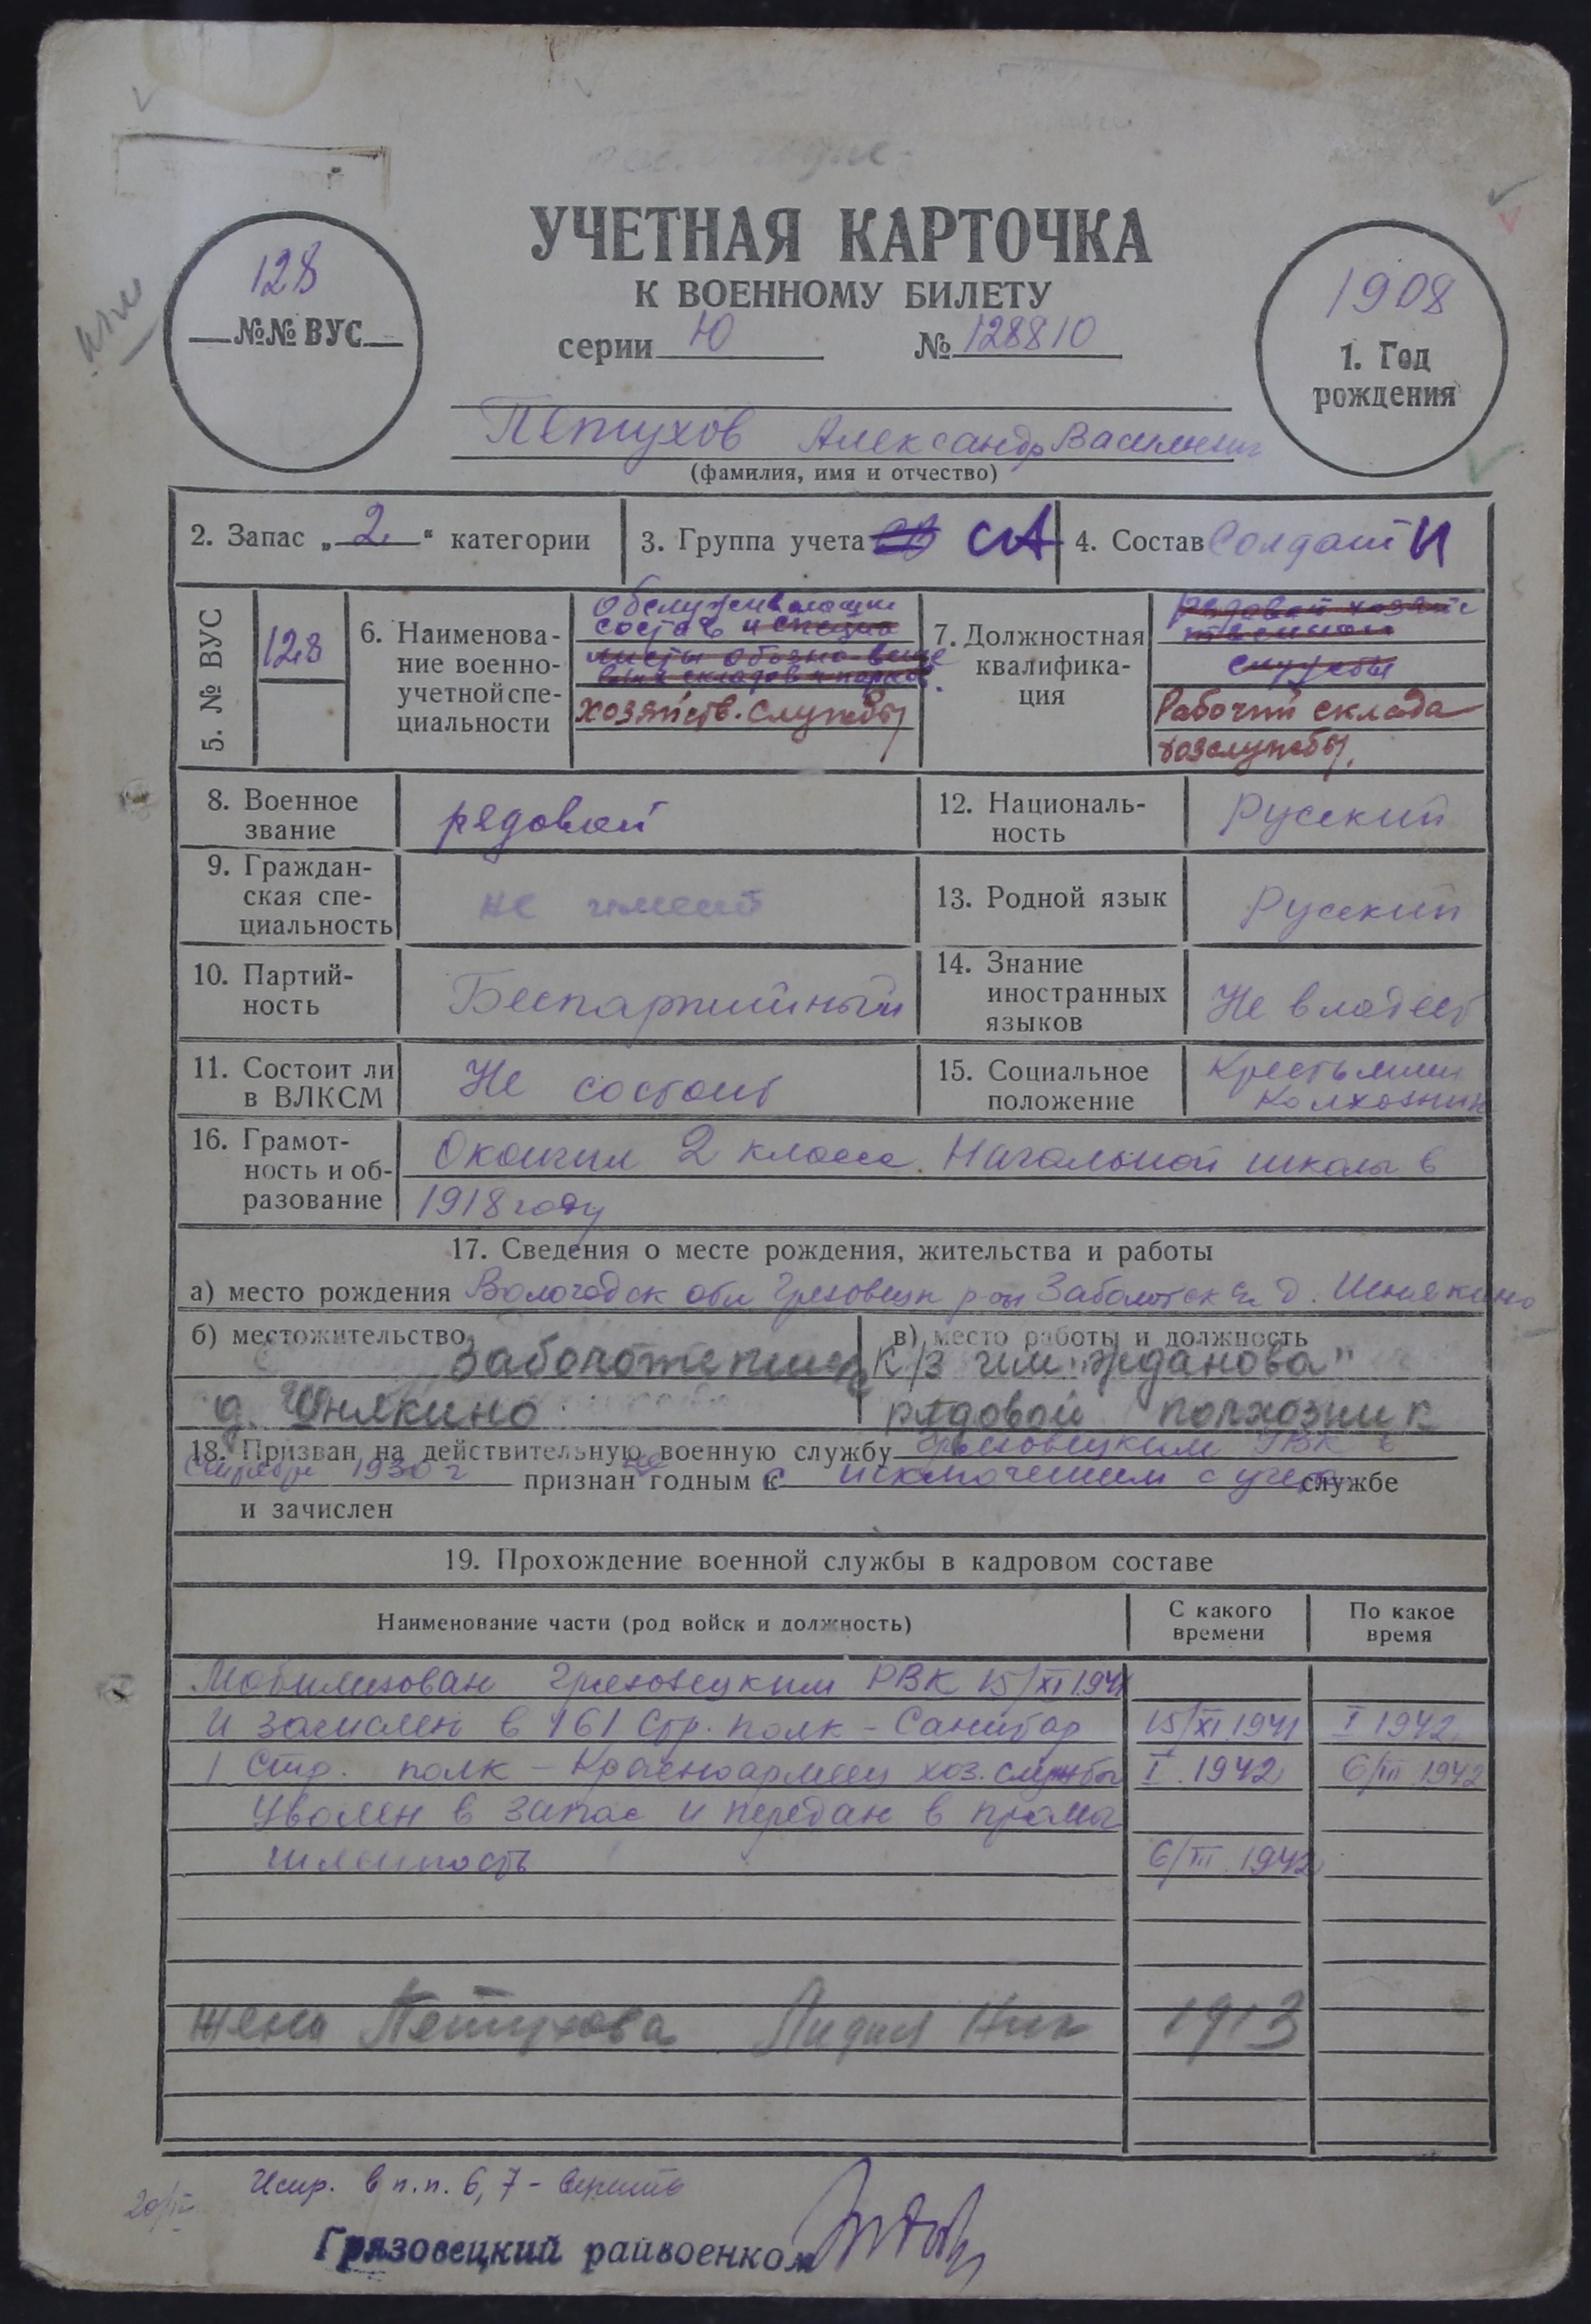 УЧЕТНАЯ КАРТОЧКА
К ВОЕННОМУ БИЛЕТУ
серии Ю № 128810
128
№№ ВУС
1908
1. Год
рождения
Петухов Александр Васильевич
(фамилия, имя и отчество)
2. Запас „2“ категории
3. Группа учета СА
4. Состав Солдаты
5. № ВУС
128
6. Наименова-
ние военно-
учетной спе-
циальности
Обслуживающий
состав и специа
листы обозно-веще
вых складов и парков.
хозяйств. службы
7. Должностная
квалифика-
ция
рядовой хозяйс
твенной
службы
Рабочий склада
хозслужбы.
8. Военное
звание
рядовой
12. Националь-
ность
Русский
9. Граждан-
ская спе-
циальность
не имеет
13. Родной язык
Русский
10. Партий-
ность
Беспартийный
14. Знание
иностранных
языков
Не владеет
11. Состоит ли
в ВЛКСМ
Не состоит
15. Социальное
положение
Крестьянин
Колхозник
16. Грамот-
ность и об-
разование
Окончил 2 класса Начальной школы в
1918 году
17. Сведения о месте рождения, жительства и работы
а) место рождения Вологодск обл Грязовецк р-он Заболотск д.
б) местожительство
д. Шнякино
в) место работы и должность
к/з им "Жданова"
рядовой колхозник
18. Призван на действительную военную службу Грязовецким РВК в
1930 г признан не годным с исключением с учета службе
и зачислен
19. Прохождение военной службы в кадровом составе
Наименование части (род войск и должность)
С какого
времени
По какое
время
Мобилизован Грязовецким РВК 15/XI 1941
И зачислен в 161 Стр. полк - Санитар 15/XI 1941 I 1942
1 Стр. полк - Красноармеец хоз. службы I. 1942 6/III 1942
Уволен в запас и передан в промы
шленность 6/III 1942
жена Петухова Лидия Ник 1913
Испр. в п.п. 6, 7 - верить
Грязовецкий райвоенком